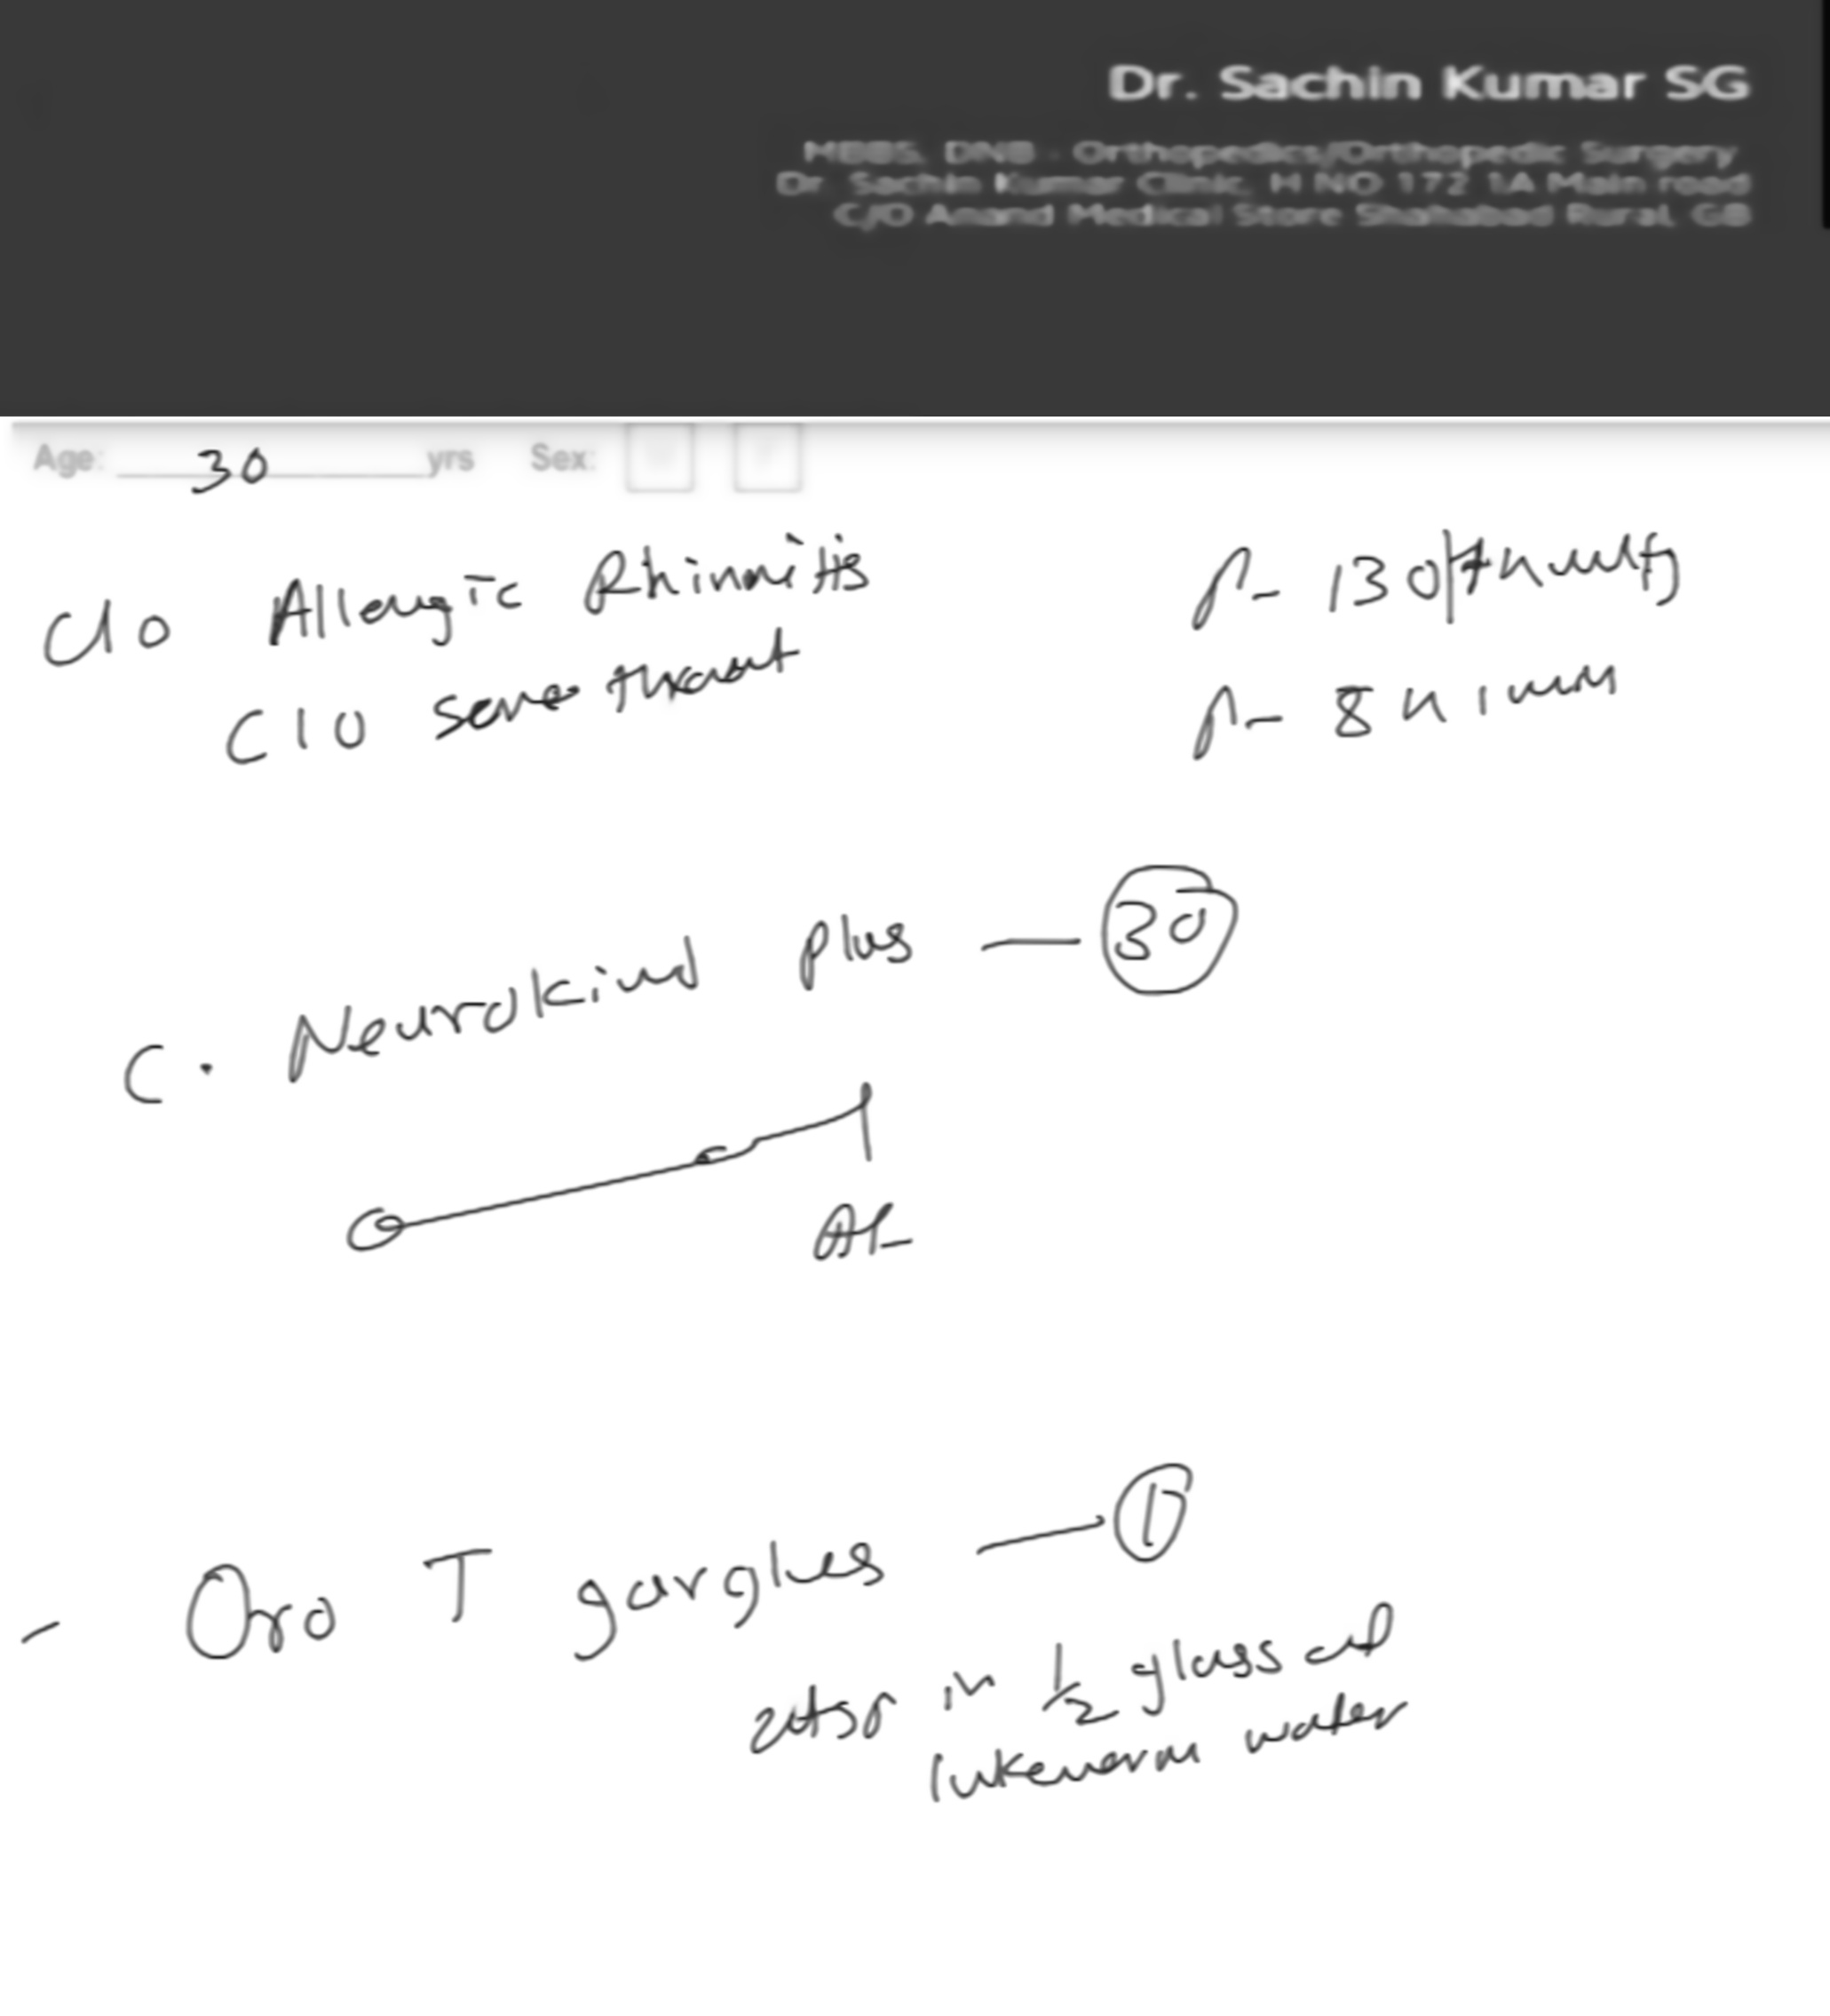 Dr. Sachin Kumar SG
MBBS, DNB - Orthopedics/Orthopedic Surgery
Dr. Sachin Kumar Clinic, H NO 172 1A Main road
C/O Anand Medical Store Shahabad Rural, GB
Age: 30 yrs Sex:
C/o Allergic Rhinnitis
C/o sore throat
C. Neurokind Plus — 30
- Oro T gargles — 1
in 1/2 glass of
lukewarm water